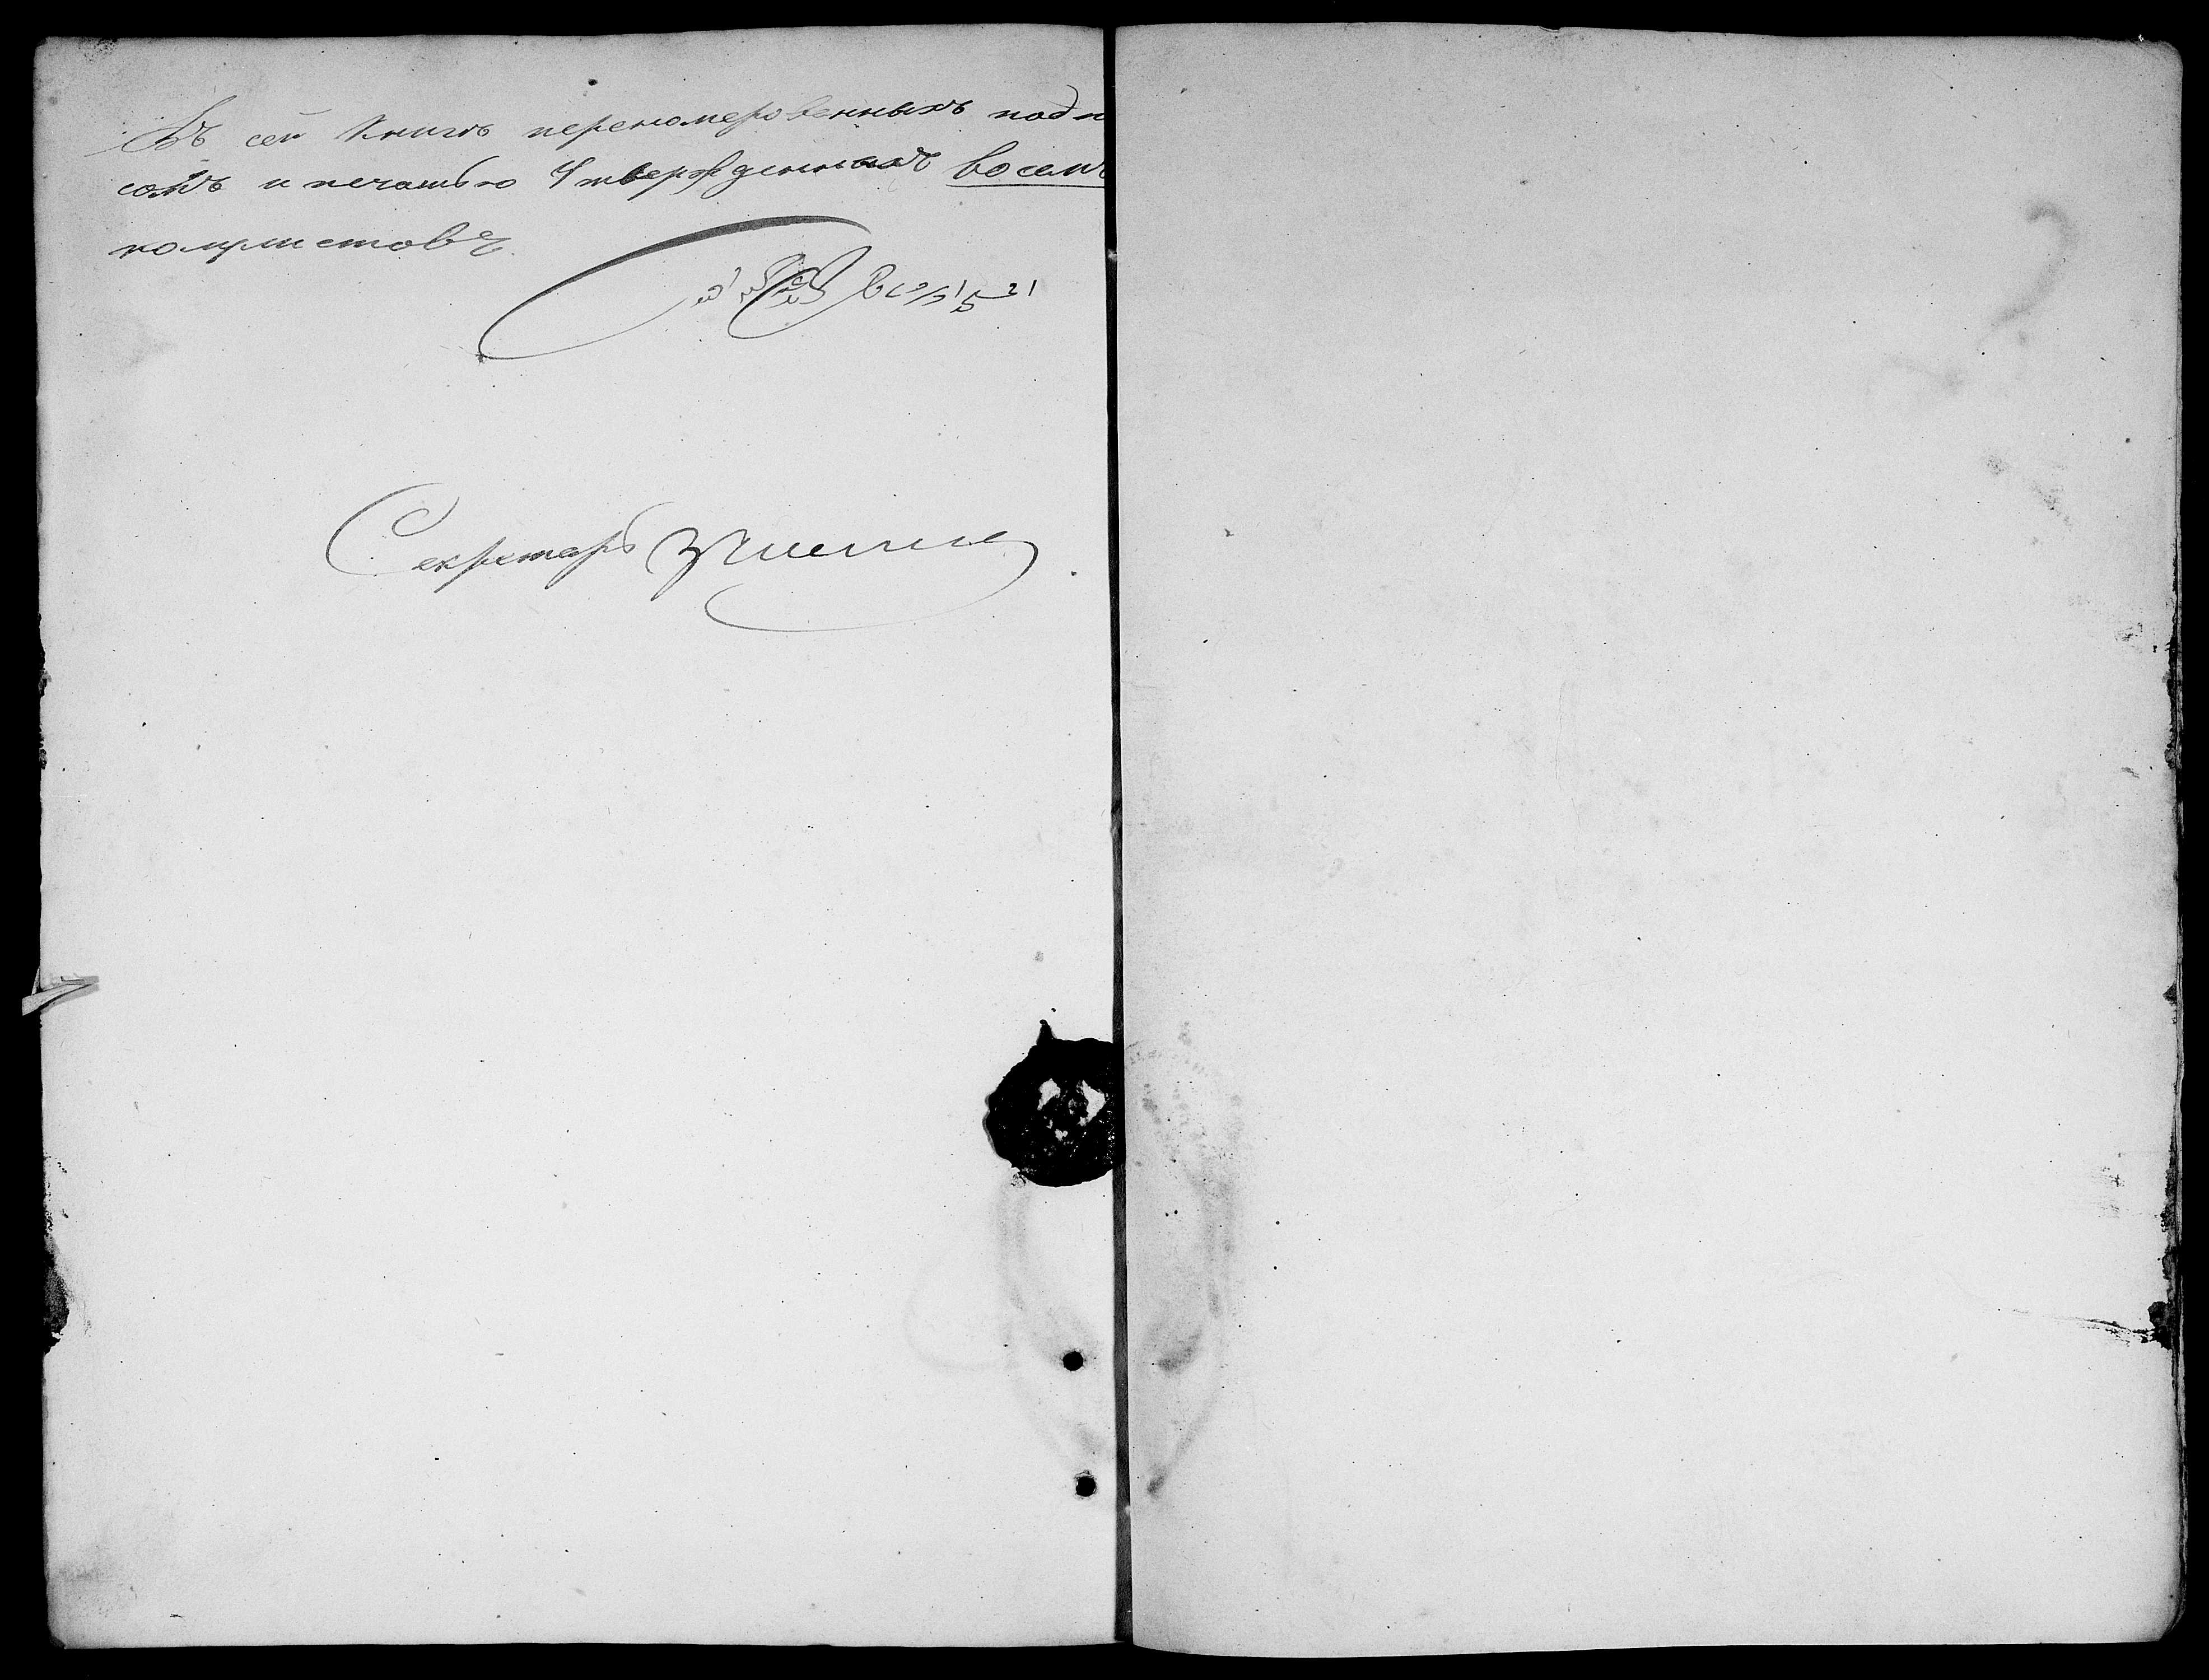 Въ сей Книгѣ переномерованныхъ подп
сомъ и печатью Утвержденныхъ восемь
полулистовъ.
Секретарь